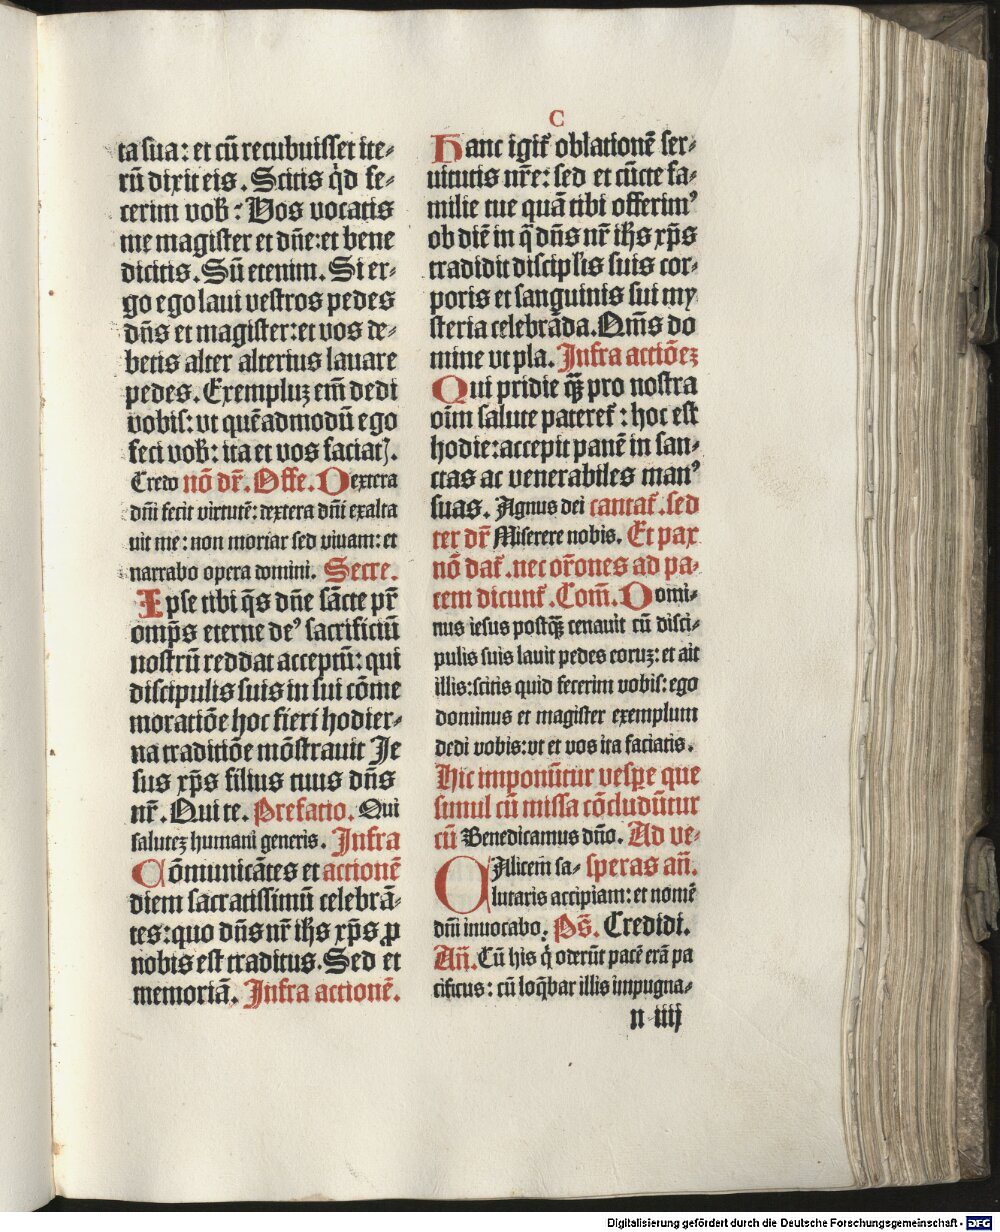 C
ta sua: et cū recubuisset ite-
rū dixit eis. Scitis qd fe-
cerim vob: Vos vocatis
me magister et dn̄e: et bene
dicitis. Sū etenim. Si er-
go ego laui vestros pedes
dn̄s et magister: et vos de-
betis alter alterius lauare
pedes. Exempluz em̄ dedi
vobis: vt quēadmodū ego
feci vob: ita et vos faciatꝭ.
Credo nō dr̄. Offe. Dextera
dn̄i fecit virtutē: dextera dn̄i exalta
uit me: non moriar sed viuam: et
narrabo opera domini. Secre.
Ipse tibi q̄s dn̄e sācte pr̄
omp̄s eterne deꝰ sacrificiū
nostrū reddat acceptū: qui
discipulis suis in sui cōme
moratiōe hoc fieri hodier-
na traditiōe mōstrauit Je
sus xp̄s filius tuus dn̄s
nr̄. Qui te. Prefatio. Qui
salutez humani generis. Infra
Cōmunicātes et actionē
diem sacratissimū celebrā-
tes: quo dn̄s nr̄ ih̄s xp̄s ꝓ
nobis est traditus. Sed et
memoriā. Infra actionē.
Hanc igit̄ oblationē ser-
uitutis nr̄e: sed et cūcte fa-
milie tue quā tibi offerimꝰ
ob diē in q̄ dn̄s nr̄ ih̄s xp̄s
tradidit discipl̄is suis cor-
poris et sanguinis sui my
steria celebrāda. Qm̄s do
mine vt pla. Infra actiōez
Qui pridie qꝫ̄ pro nostra
oīm salute pateret̄: hoc est
hodie: accepit panē in san-
ctas ac venerabiles manꝰ
suas. Agnus dei cantat̄. sed
ter dr̄ Miserere nobis. Et pax
nō dat̄. nec or̄ones ad pa-
cem dicunt̄. Com̄. Domi-
nus iesus postqꝫ̄ cenauit cū disci-
pulis suis lauit pedes eoruz: et ait
illis: scitis quid fecerim vobis: ego
dominus et magister exemplum
dedi vobis: vt et vos ita faciatis.
Hic imponūtur vesꝑe que
simul cū missa cōcludūtur
cū Benedicamus dn̄o. Ad ve-
CAlicem sa- speras an̄.
lutaris accipiam: et nomē
dn̄i inuocabo. Ps̄. Credidi.
An̄. Cū his q̄ oderūt pacē erā pa
cificus: cū loq̄bar illis impugna-
n iiij
Digitalisierung gefördert durch die Deutsche Forschungsgemeinschaft - DFG